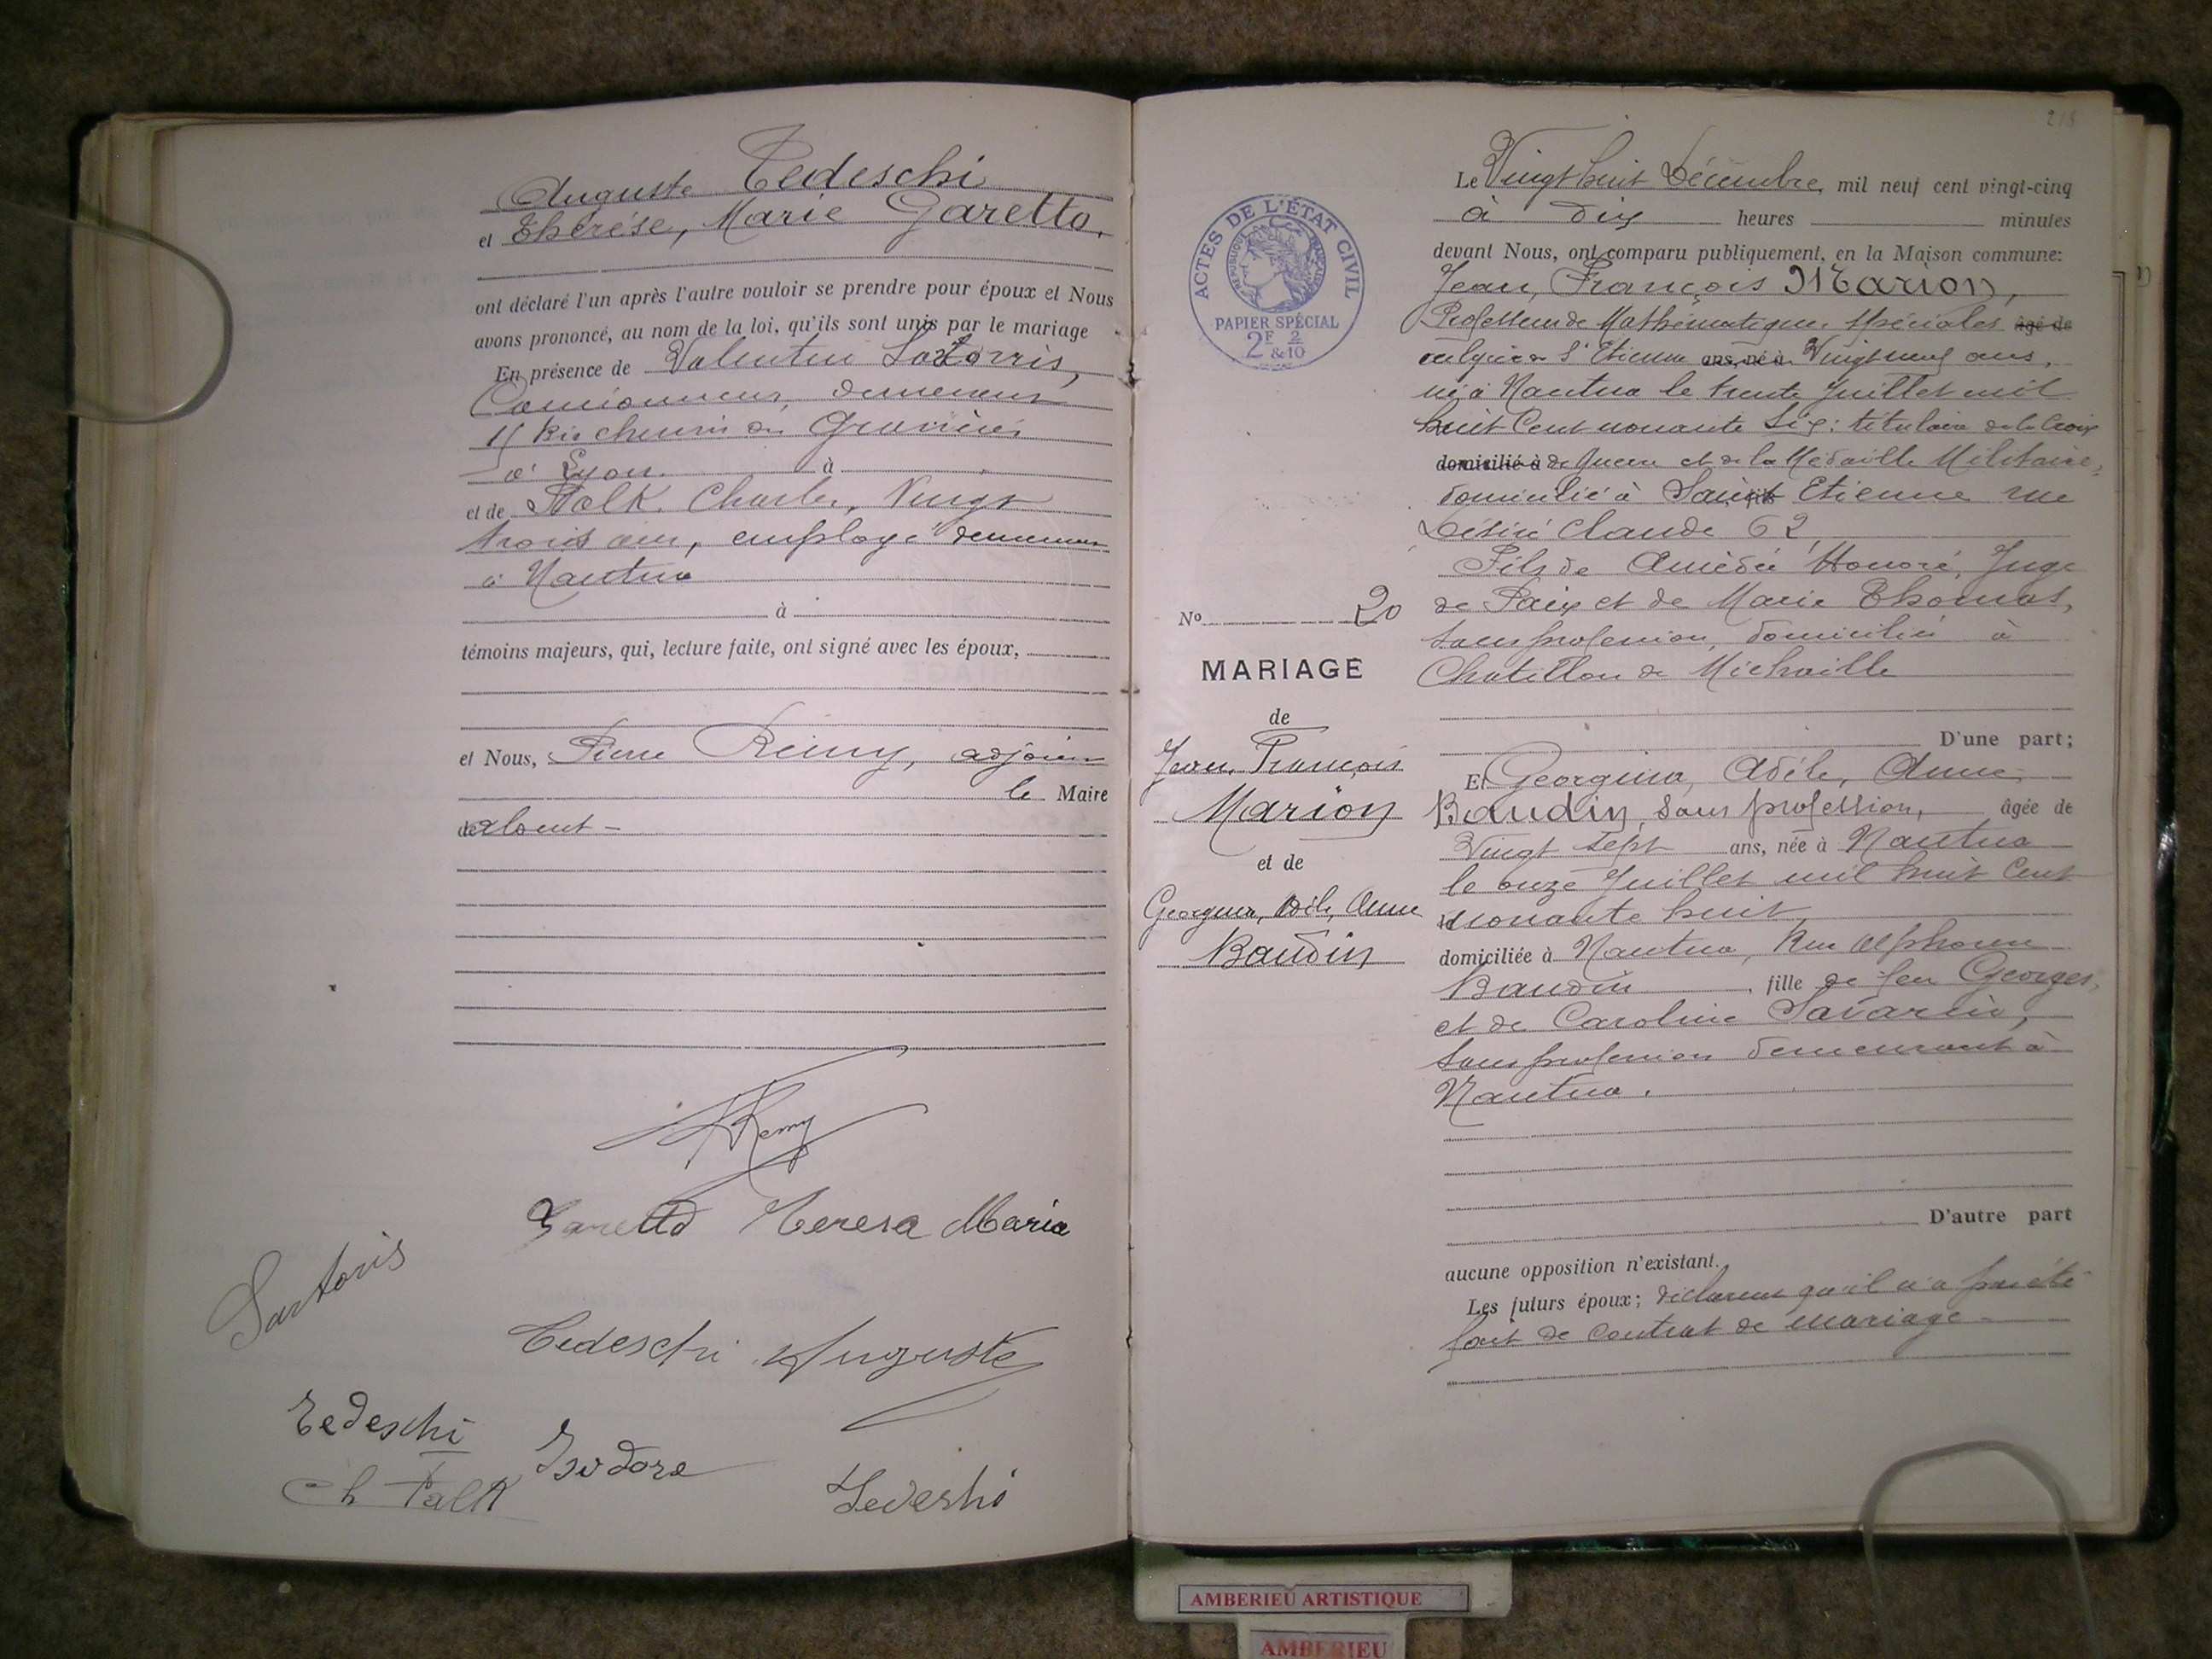 Auguste Tedeschi
et Thérèse, Marie Garetto.
ont déclaré l'un après l'autre vouloir se prendre pour époux et Nous
avons prononcé, au nom de la loi, qu'ils sont unis par le mariage
En présence de Valentin Sartorris,
Camionneur, demeurant
15 bis chemin des Gravières
à Lyon. à
et de Falk Charles, Vingt
trois ans, employé demeurant
à Nantua
à
témoins majeurs, qui, lecture faite, ont signé avec les époux,
et Nous, Pierre Rémy, adjoint
le Maire
absent -
Remy
Garetto Teresa Maria
Sartoris
Tedeschi Auguste
Tedeschi Isidore
Ch Falk
Tedeshi
218
ACTES DE L'ÉTAT CIVIL
RÉPUBLIQUE FRANÇAISE
PAPIER SPÉCIAL
2F & 2/10
No 20
MARIAGE
de
Jean, François
Marion
et de
Georgina, Adèle, Anne
Baudin
Le Vingt huit Décembre, mil neuf cent vingt-cinq
à dix heures minutes
devant Nous, ont comparu publiquement, en la Maison commune:
Jean, François Marion,
Professeur de Mathématiques spéciales âgé de
au lycée de St Etienne ans, né à Vingt neuf ans,
né à Nantua le trente Juillet mil
huit Cent nonante Six: titulaire de la Croix
domicilié à de guerre et de la Médaille Militaire,
domicilié à Saint Etienne rue
Désiré Claude 62
Fils de Amédée Honoré, Juge
de Paix et de Marie Thomas,
sans profession, domiciliés à
Chatillon de Michaille
D'une part;
Et Georgina, Adèle, Anne
Baudin, sans profession, âgée de
Vingt sept ans, née à Nantua
le onze Juillet mil huit Cent
nonante huit,
domiciliée à Nantua, Rue Alphonse
Baudin, fille de feu Georges,
et de Caroline Savarin,
sans profession demeurant à
Nantua.
D'autre part
aucune opposition n'existant.
Les futurs époux; déclarent qu'il n'a pas été
fait de contrat de mariage -
AMBERIEU ARTISTIQUE
AMBERIEU